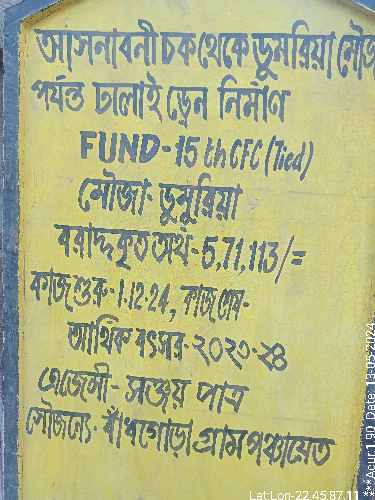 আসনাবনী চক থেকে ডুমরিয়া মৌজ
পর্যন্ত ঢালাই ড্রেন নির্মাণ
FUND-15 th CFC (Tied)
মৌজা- ডুমুরিয়া
বরাদ্দকৃত অর্থ-5,71,113/=
কাজ শুরু-1-12-24, কাজ শেষ-
আর্থিক বৎসর-২০২৩-২৪
এজেন্সী- সঞ্জয় পাত্র
সৌজন্যে- বাঁধগোড়া গ্রাম পঞ্চায়েত
Lat Lon-22.45,87.11
***Acur:1.90 Date: 13-05-2024